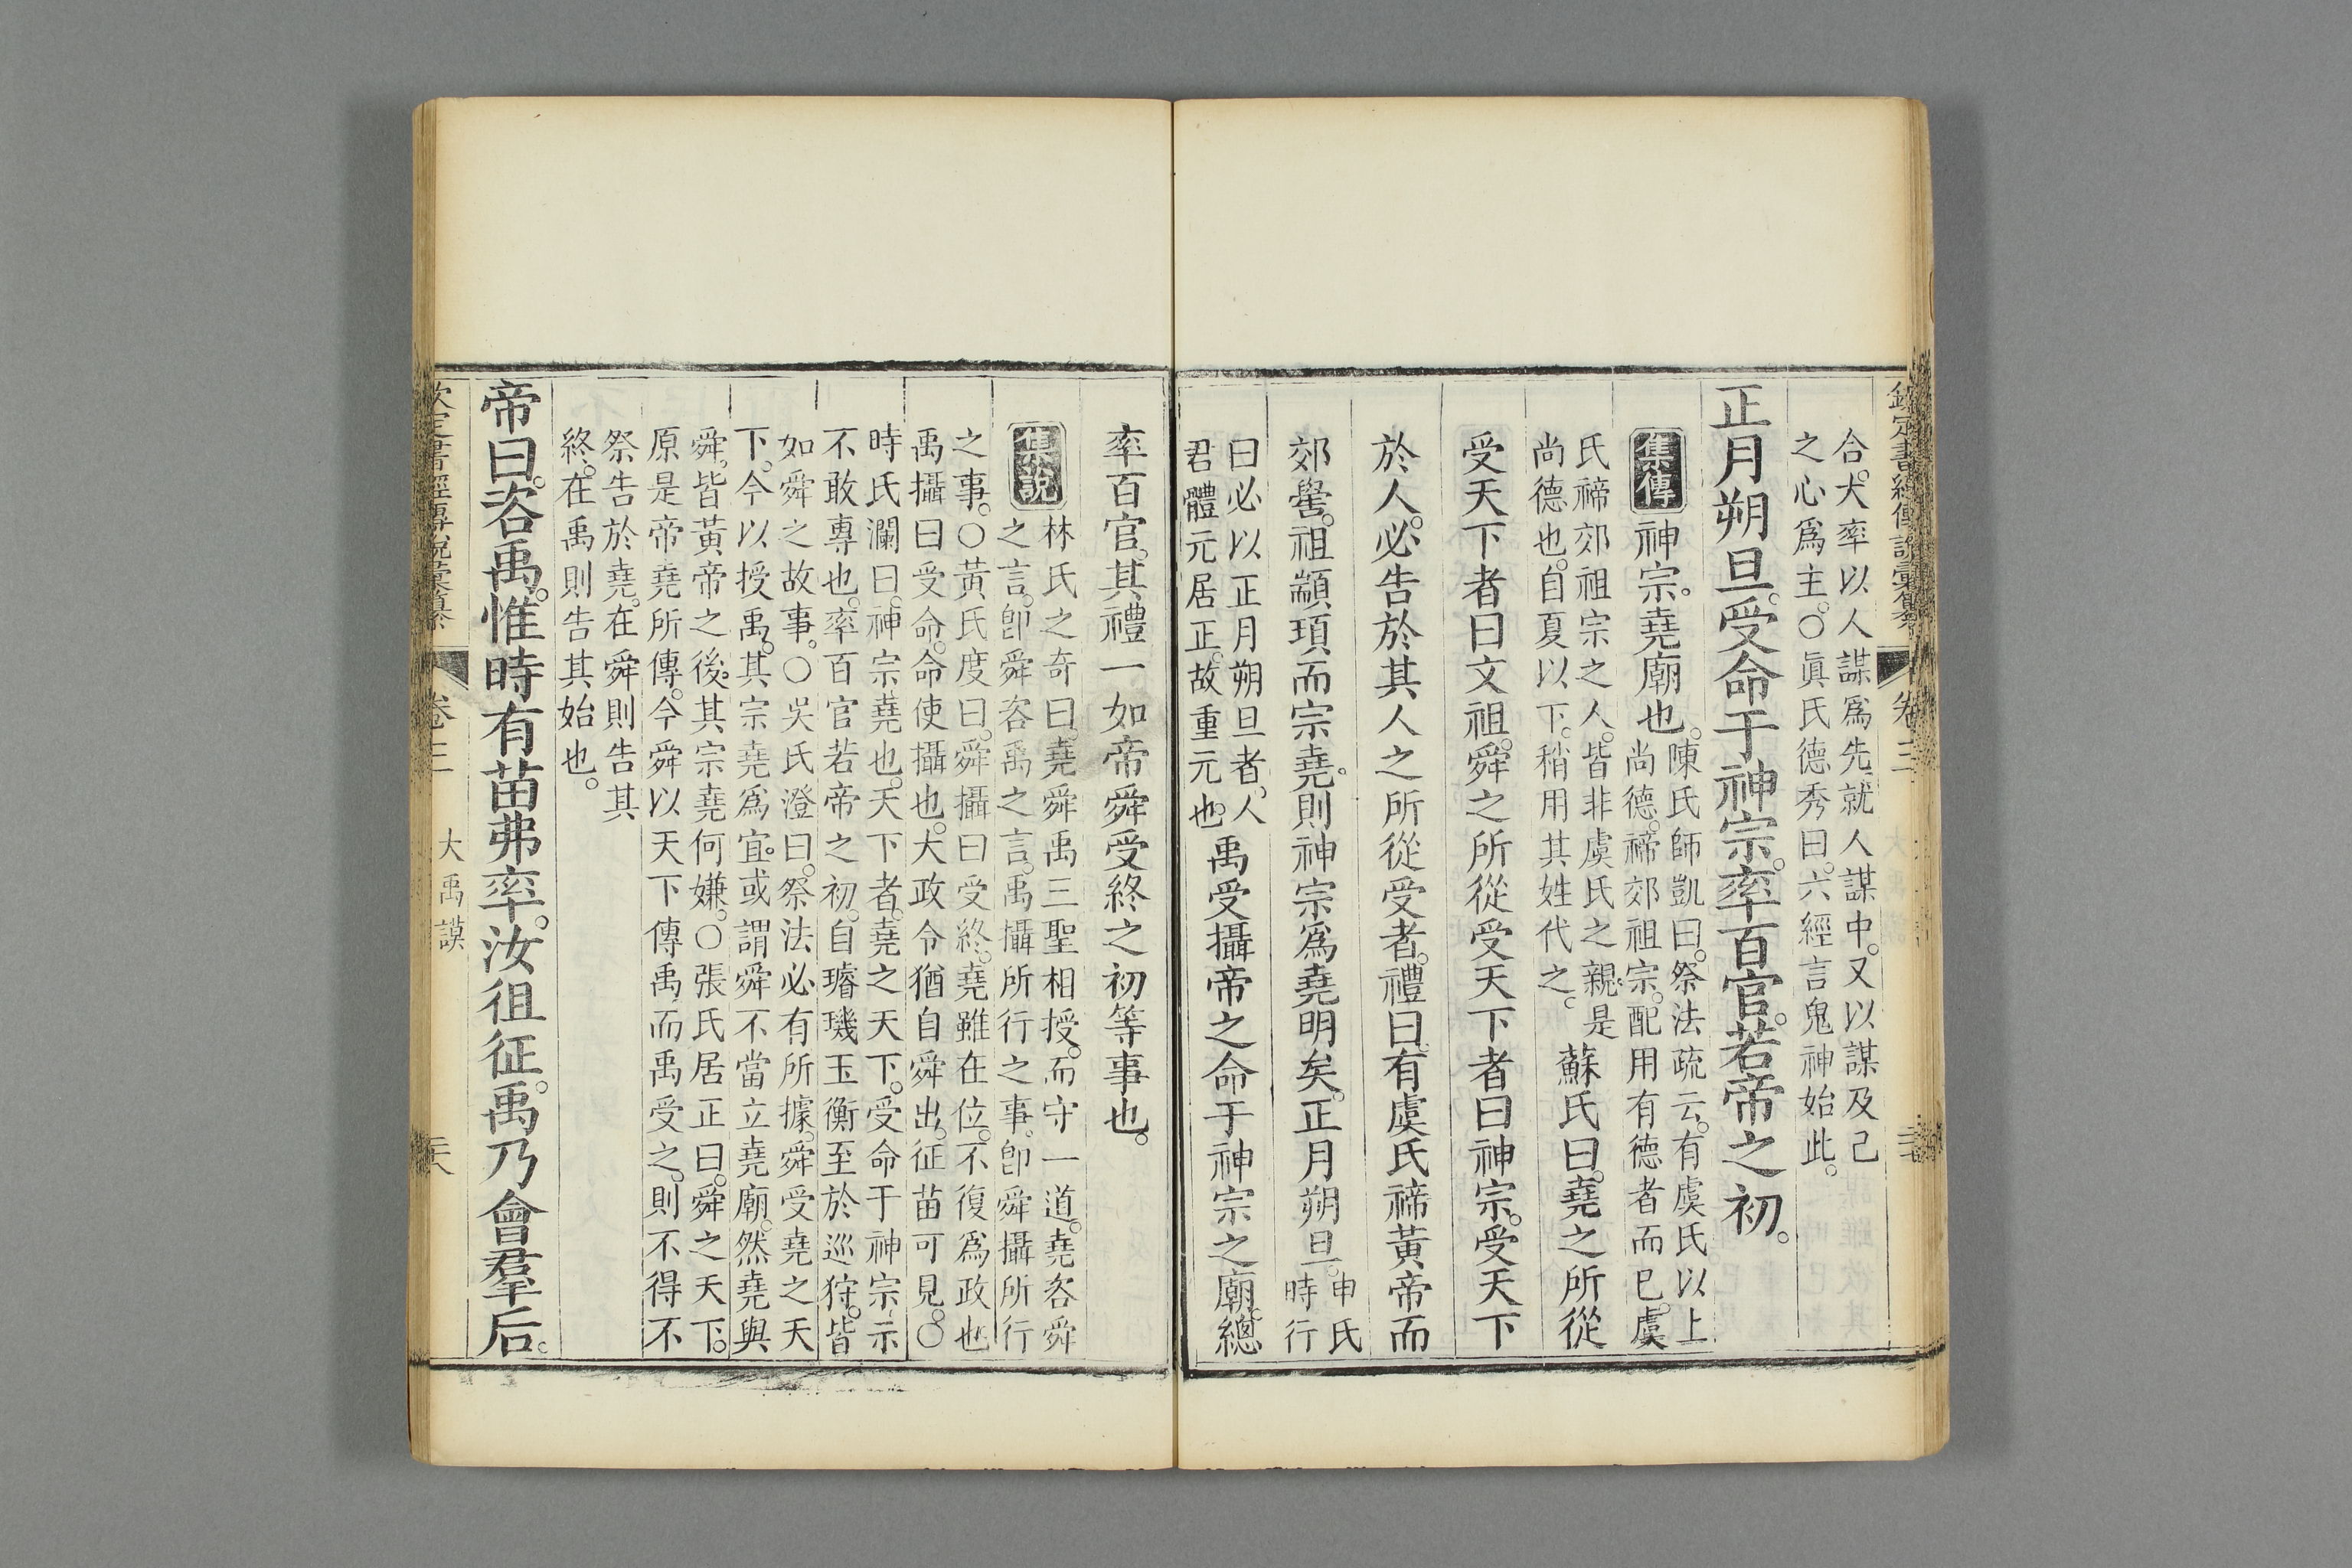 欽定書經傳說彙纂 卷三
合。大率以人謀爲先。就人謀中。又以謀及己
之心爲主。○眞氏德秀曰。六經言鬼神始此。
正月朔旦。受命于神宗。率百官。若帝之初。
集傳 神宗。堯廟也。
陳氏師凱曰。祭法疏云。有虞氏。以上
尚德。禘郊祖宗。配用有德者而已。虞
氏禘郊祖宗之人。皆非虞氏之親。是
尚德也。自夏以下。稍用其姓代之。
蘇氏曰。堯之所從
受天下者曰文祖。舜之所從受天下者曰神宗。受天下
於人。必告於其人之所從受者。禮曰。有虞氏禘黃帝而
郊嚳。祖顓頊而宗堯。則神宗爲堯明矣。正月朔旦。
申氏
時行
曰必以正月朔旦者。人
君體元居正。故重元也。
禹受攝帝之命于神宗之廟。總
率百官。其禮一如帝舜受終之初等事也。
集說
林氏之奇曰。堯舜禹三聖相授。而守一道。堯咨舜
之言。卽舜咨禹之言。禹攝所行之事。卽舜攝所行
之事。○黃氏度曰。舜攝曰受終。堯雖在位。不復爲政也
禹攝曰受命。命使攝也。大政令猶自舜出。征苗可見。○
時氏瀾曰。神宗堯也。天下者。堯之天下。受命于神宗。示
不敢專也。率百官若帝之初。自璿璣玉衡至於巡狩。皆
如舜之故事。○吳氏澄曰。祭法必有所據。舜受堯之天
下。今以授禹。其宗堯爲宜。或謂舜不當立堯廟。然堯與
舜。皆黃帝之後。其宗堯何嫌。○張氏居正曰。舜之天下。
原是帝堯所傳。今舜以天下傳禹。而禹受之。則不得不
祭告於堯。在舜則告其
終。在禹則告其始也。
帝曰。咨禹。惟時有苗弗率。汝徂征。禹乃會羣后。
欽定書經傳說彙纂 卷三 大禹謨 三八